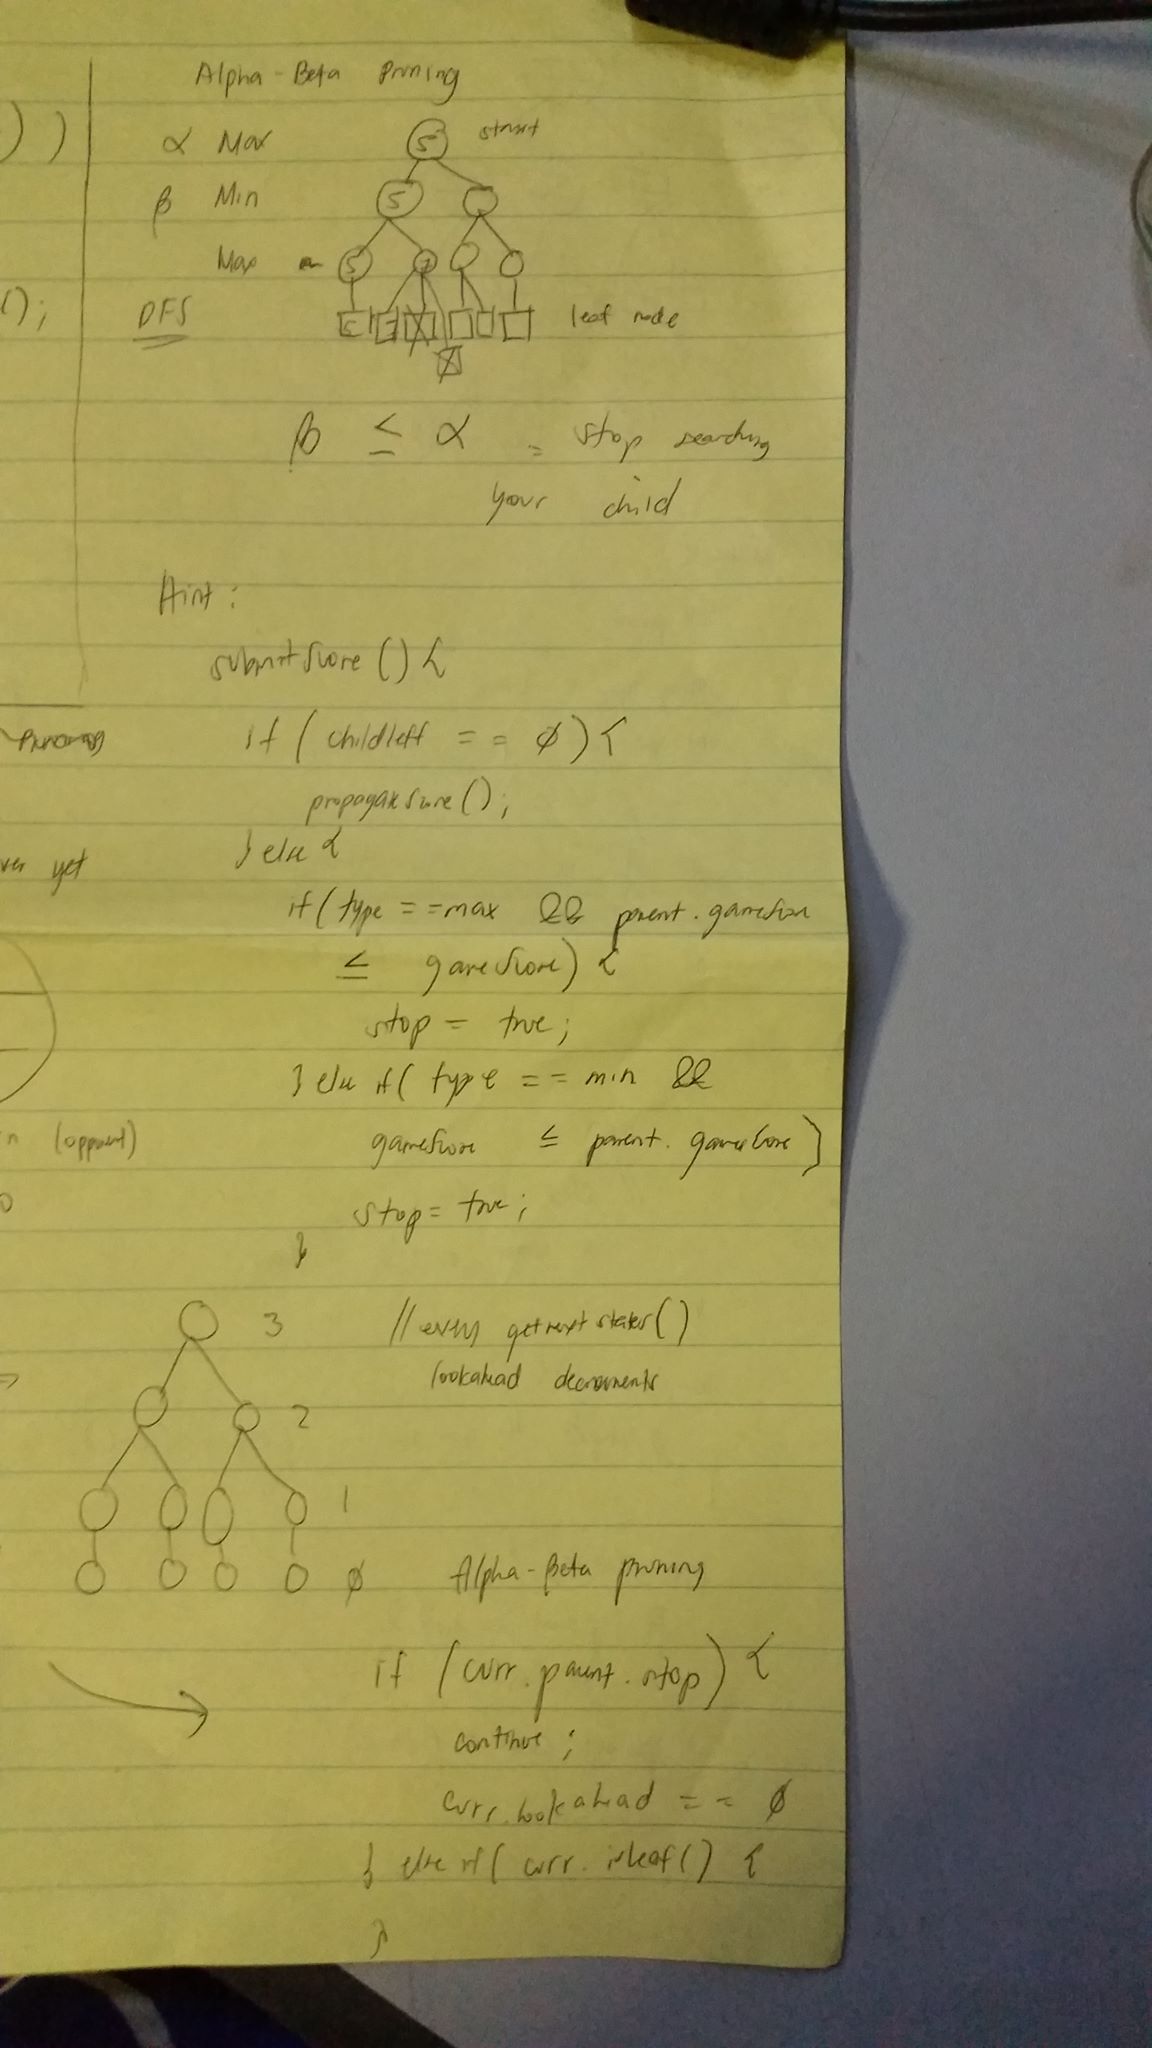 Alpha-Beta Pruning
) )
α Max
5 start
β Min
5
Max
5 7
();
DFS
5 7
leaf node
β ≤ α = stop searching
your child
Hint:
submitScore() {
pruning
if (childleft == ∅) {
propagateScore();
ver yet
} else {
if (type == max && parent.gameScore
≤ gameScore) {
stop = true;
} else if (type == min &&
n (opponent)
gameScore ≤ parent.gameScore)
stop = true;
}
3
// every getnextstates()
lookahead decrements
2
1
∅
Alpha-Beta pruning
if (curr.parent.stop) {
continue;
curr.lookahead == ∅
} else if (curr.isleaf() {
}